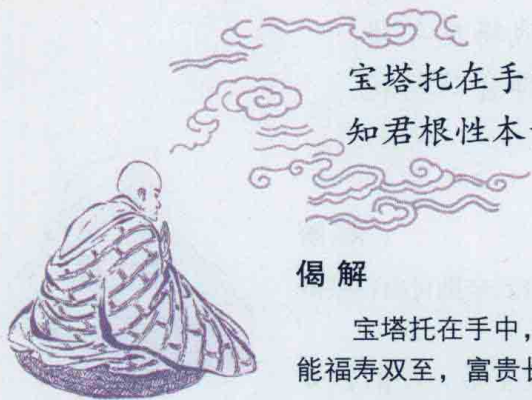 宝塔托在手
知君根性本
偈解
宝塔托在手中，
能福寿双至，富贵